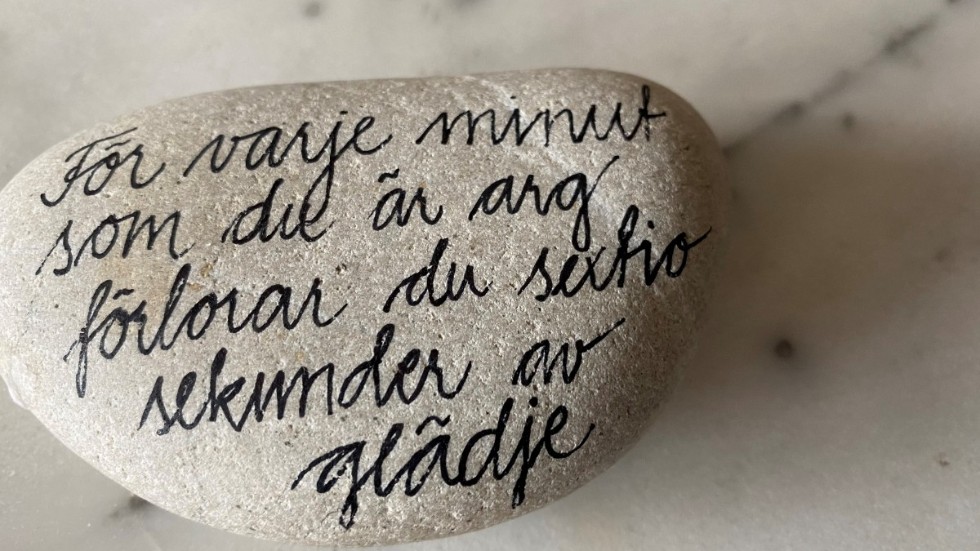 För varje minut
som du är arg
förlorar du sextio
sekunder av
glädje